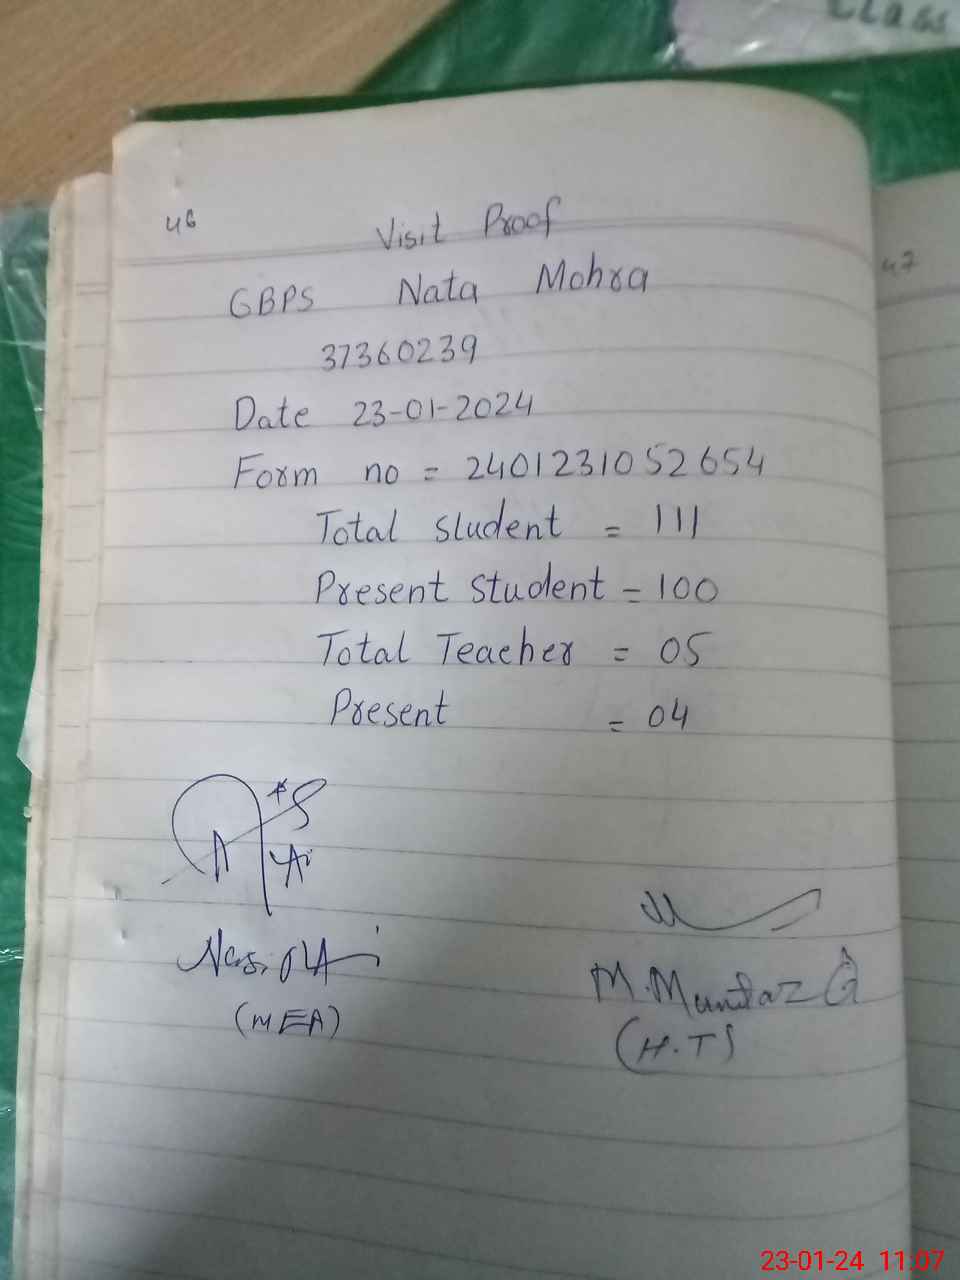 Class
46
Visit Proof
GBPS Nata Mohra
37360239
Date 23-01-2024
Form no = 2401231052654
Total sludent = 111
Present student = 100
Total Teacher = 05
Present = 04
(MEA)
M. Mumtaz
(H.T)
47
23-01-24 11:07